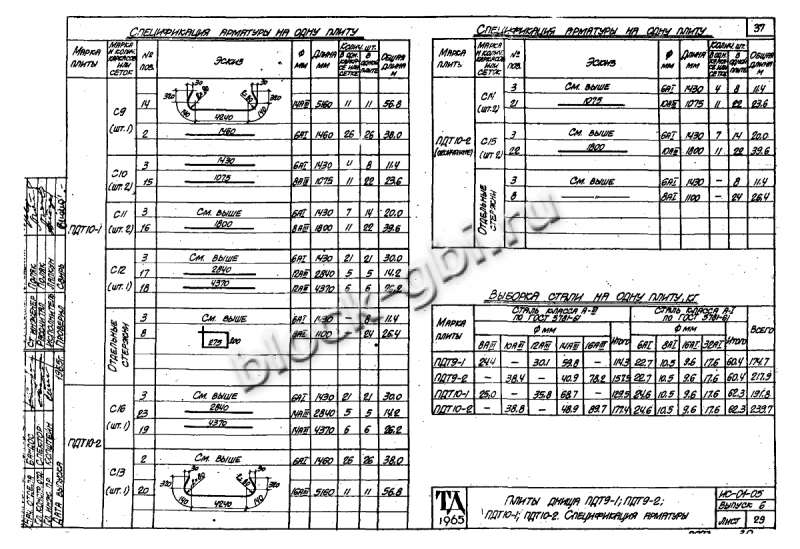 Спецификация арматуры на одну плиту
Марка плиты | Марка и колич. каркасов или сеток | №№ поз. | Эскиз | Ф мм | Длина мм | Колич. шт. в одн. каркасе или сетке | в одной плите | Общая длина м
ПДТ10-1
С9 (шт.1) | 14 | 30 30 320 320 140 140 4240 | 14АIII | 5160 | 11 | 11 | 56.8
2 | 1460 | 6АI | 1460 | 26 | 26 | 38.0
С10 (шт. 2) | 3 | 1430 | 6АI | 1430 | 4 | 8 | 11.4
15 | 1075 | 8АIII | 1075 | 11 | 22 | 23.6
С11 (шт. 2) | 3 | См. выше | 6АI | 1430 | 7 | 14 | 20.0
16 | 1800 | 8АIII | 1800 | 11 | 22 | 39.6
С12 (шт. 1) | 3 | См. выше | 6АI | 1430 | 21 | 21 | 30.0
17 | 2840 | 12АIII | 2840 | 5 | 5 | 14.2
18 | 4370 | 12АIII | 4370 | 6 | 6 | 26.2
Отдельные стержни | 3 | См. выше | 6АI | 1430 | – | 8 | 11.4
8 | 275 200 | 8АI | 1100 | 24 | 26.4
ПДТ10-2
С16 (шт. 1) | 3 | См. выше | 6АI | 1430 | 21 | 21 | 30.0
23 | 2840 | 14АIII | 2840 | 5 | 5 | 14.2
19 | 4370 | 14АIII | 4370 | 6 | 6 | 26.2
С13 (шт. 1) | 2 | См. выше | 6АI | 1460 | 26 | 26 | 38.0
20 | 30 30 320 320 140 140 4240 | 16АIII | 5160 | 11 | 11 | 56.8
Спецификация арматуры на одну плиту
37
Марка плиты | Марка и колич. каркасов или сеток | №№ поз. | Эскиз | Ф мм | Длина мм | Колич. шт. в одн. каркасе или сетке | в одной плите | Общая длина м
ПДТ10-2 (окончание)
С14 (шт.2) | 3 | См. выше | 6АI | 1430 | 4 | 8 | 11.4
21 | 1075 | 10АIII | 1075 | 11 | 22 | 23.6
С15 (шт 2) | 3 | См. выше | 6АI | 1430 | 7 | 14 | 20.0
22 | 1800 | 10АIII | 1800 | 11 | 22 | 39.6
Отдельные стержни | 3 | См. выше | 6АI | 1430 | – | 8 | 11.4
8 | 8АI | 1100 | – | 24 | 26.4
Выборка стали на одну плиту, кг
Марка плиты | Сталь класса А-III по ГОСТ 5781-61 | Сталь класса А-I по ГОСТ 5781-61 | Всего
Ф мм | Ф мм
8АIII | 10АIII | 12АIII | 14АIII | 16АIII | Итого | 6АI | 8АI | 16АI | 32АI | Итого
ПДТ9-1 | 24.4 | – | 30.1 | 59.8 | – | 114.3 | 22.7 | 10.5 | 9.6 | 17.6 | 60.4 | 174.7
ПДТ9-2 | – | 38.4 | – | 40.9 | 78.2 | 157.5 | 22.7 | 10.5 | 9.6 | 17.6 | 60.4 | 217.9
ПДТ10-1 | 25.0 | – | 35.8 | 68.7 | – | 129.5 | 24.6 | 10.5 | 9.6 | 17.6 | 62.3 | 191.8
ПДТ10-2 | – | 38.8 | – | 48.9 | 89.7 | 177.4 | 24.6 | 10.5 | 9.6 | 17.6 | 62.3 | 239.7
ТД 1965
Плиты днища ПДТ9-1; ПДТ9-2;
ПДТ10-1; ПДТ10-2. Спецификация арматуры
ИС-01-05
Выпуск 6
Лист 29
Ст. инженер
Разработал
Исполнитель
Проверил
Дата выпуска 1965г.
block-gbi.ru